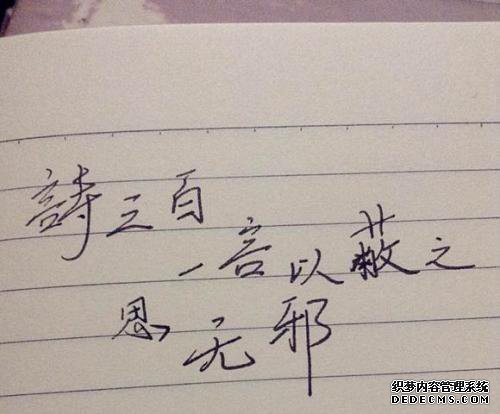 詩三百
一言以蔽之
思无邪
织梦内容管理系统
DEDECMS.COM